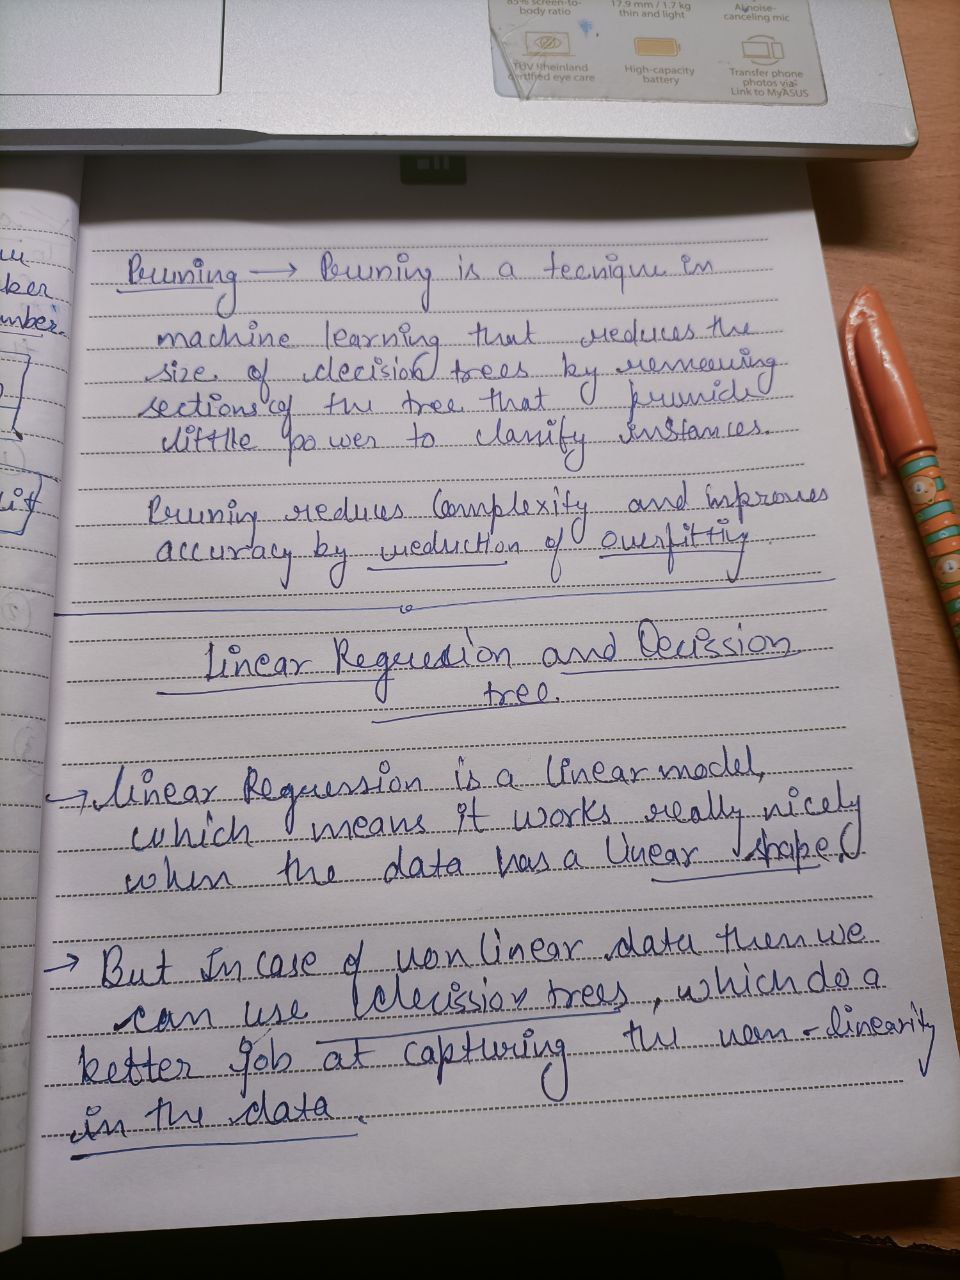 85% screen-to-
body ratio
17.9 mm / 1.7 kg
thin and light
AI noise-
canceling mic
TÜV Rheinland
certified eye care
High-capacity
battery
Transfer phone
photos via
Link to MyASUS
ker
mber.
Pruning → Pruning is a tecnique in
machine learning that reduces the
size of decision trees by removing
sections of the tree that provide
little power to classify instances.
Pruning reduces Complexity and improves
accuracy by reduction of overfitting
Linear Regression and Decission
tree.
→ Linear Regression is a linear model,
which means it works really nicely
when the data has a linear shape.
→ But In case of non linear data then we
can use decission trees, which do a
better job at capturing the non-linearity
in the data.